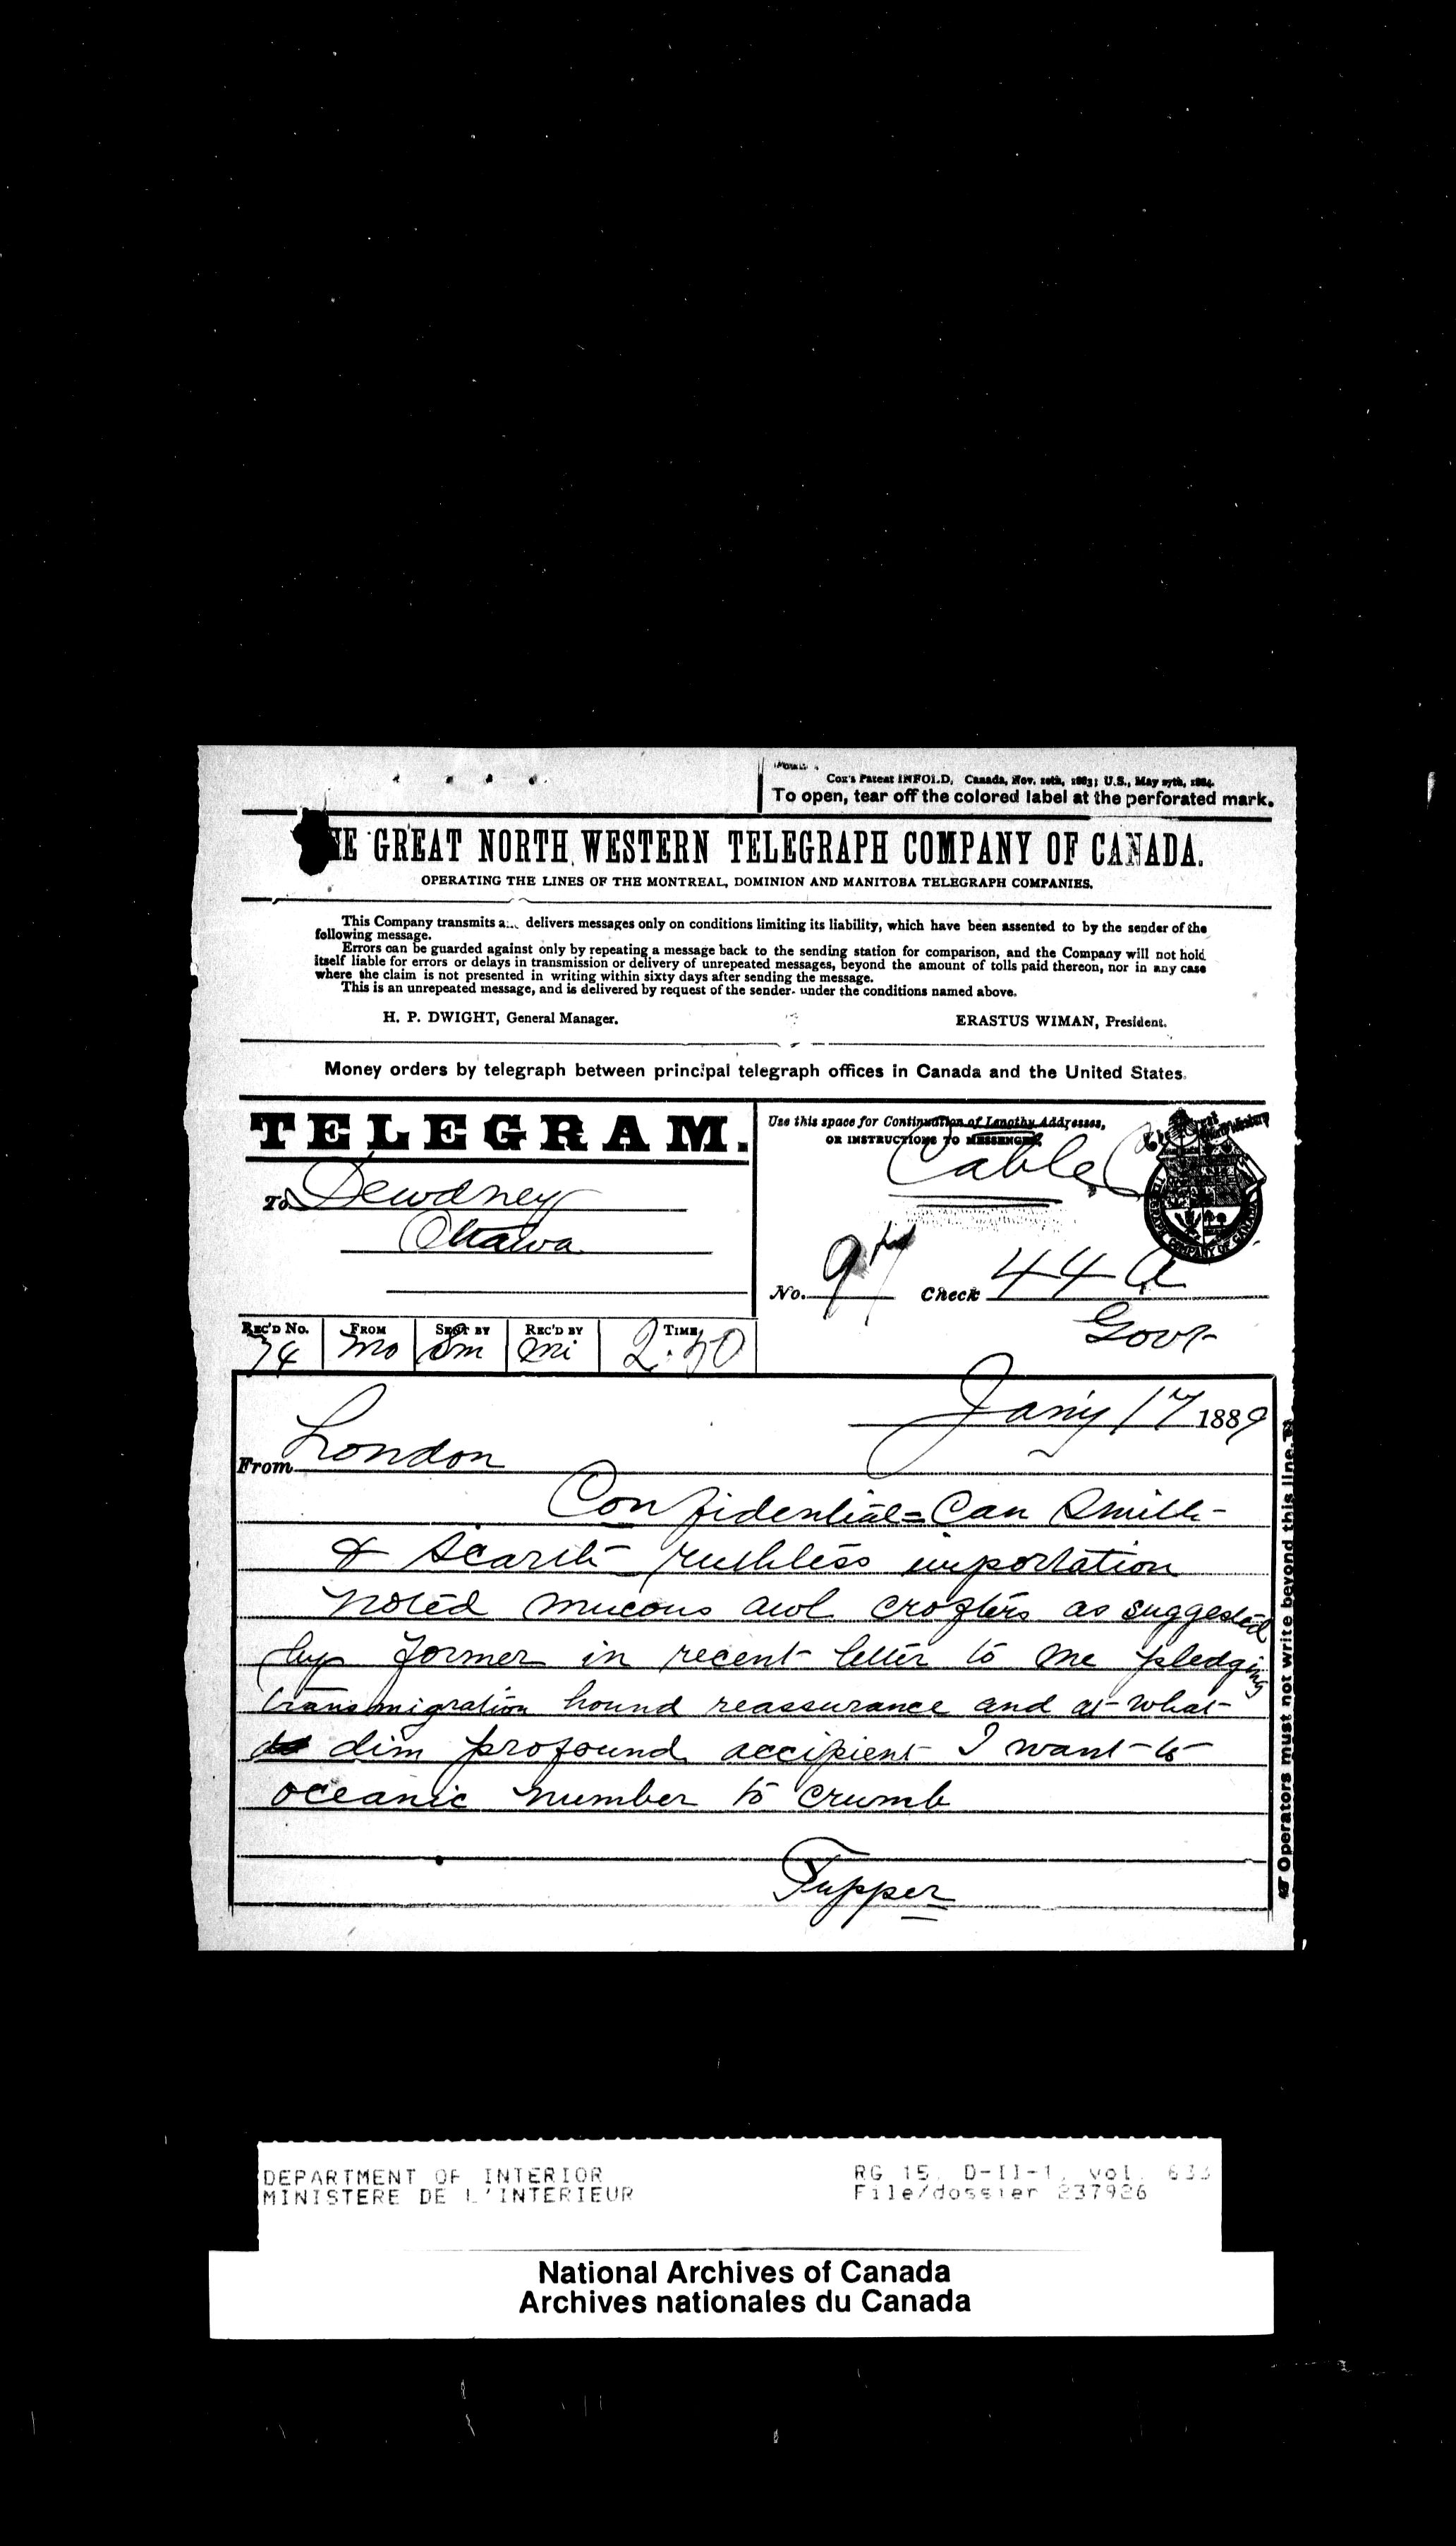 Cox's Patent INFOLD, Canada, Nov. 10th, 1883; U.S., May 27th, 1884.
To open, tear off the colored label at the perforated mark.
HE GREAT NORTH WESTERN TELEGRAPH COMPANY OF CANADA.
OPERATING THE LINES OF THE MONTREAL, DOMINION AND MANITOBA TELEGRAPH COMPANIES.
This Company transmits a delivers messages only on conditions limiting its liability, which have been assented to by the sender of the
following message.
Errors can be guarded against only by repeating a message back to the sending station for comparison, and the Company will not hold
itself liable for errors or delays in transmission or delivery of unrepeated messages, beyond the amount of tolls paid thereon, nor in any case
where the claim is not presented in writing within sixty days after sending the message.
This is an unrepeated message, and is delivered by request of the sender under the conditions named above.
H. P. DWIGHT, General Manager.
ERASTUS WIMAN, President.
Money orders by telegraph between principal telegraph offices in Canada and the United States.
TELEGRAM.
Use this space for Continuation of Lengthy Addresses,
OR INSTRUCTIONS TO MESSENGER.
Cable
To Dewdney
Ottawa
No. 97 Check 44 a
Govt
REC'D No. FROM SENT BY REC'D BY TIME
74 Mo Sm Mi 2:50
Jany 17 1889
From London
Confidential = Can Smith
& Scarth ruthless importation
noted mucous awl crofters as suggested
by former in recent letter to me pledging
transmigration hound reassurance and at what
dim profound accipient I want to
oceanic number to crumb
Tupper
Operators must not write beyond this line.
DEPARTMENT OF INTERIOR
MINISTERE DE L'INTERIEUR
RG 15, D-II-1, vol. 633
File/dossier 237926
National Archives of Canada
Archives nationales du Canada